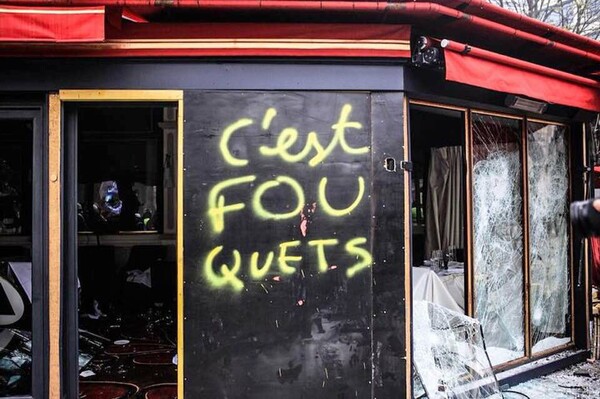 c'est
FOU
QUETS